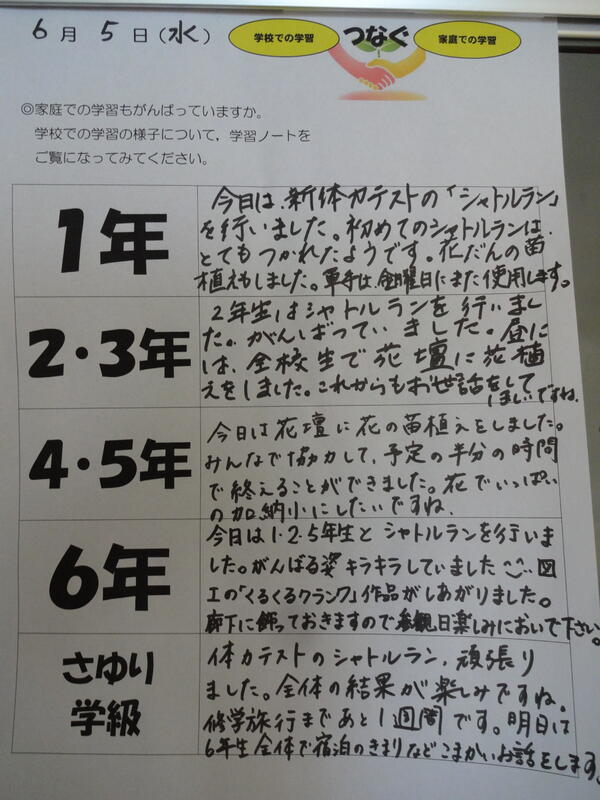 6月5日(水)
学校での学習 つなぐ 家庭での学習
◎家庭での学習もがんばっていますか。
学校での学習の様子について，学習ノートを
ご覧になってみてください。
1年
今日は、新体力テストの「シャトルラン」
を行いました。初めてのシャトルランは、
とてもつかれたようです。花だんの苗
植えもしました。軍手は、金曜日にまた使用します。
2・3年
2年生はシャトルランを行いまし
た。がんばっていました。昼に
は、全校生で花壇に花植
えをしました。これからもお世話をして
ほしいですね。
4・5年
今日は花壇に花の苗植えをしました。
みんなで協力して、予定の半分の時間
で終えることができました。花でいっぱい
の加納小にしたいですね。
6年
今日は1・2・5年生とシャトルランを行いま
した。がんばる姿キラキラしていました
図
工の「くるくるクランク」作品がしあがりました。
廊下に飾っておきますので参観日楽しみにおいで下さい。
さゆり
学級
体力テストのシャトルラン、頑張り
ました。全体の結果が楽しみですね。
修学旅行まであと1週間です。明日は
6年生全体で宿泊のきまりなどこまかいお話をします。